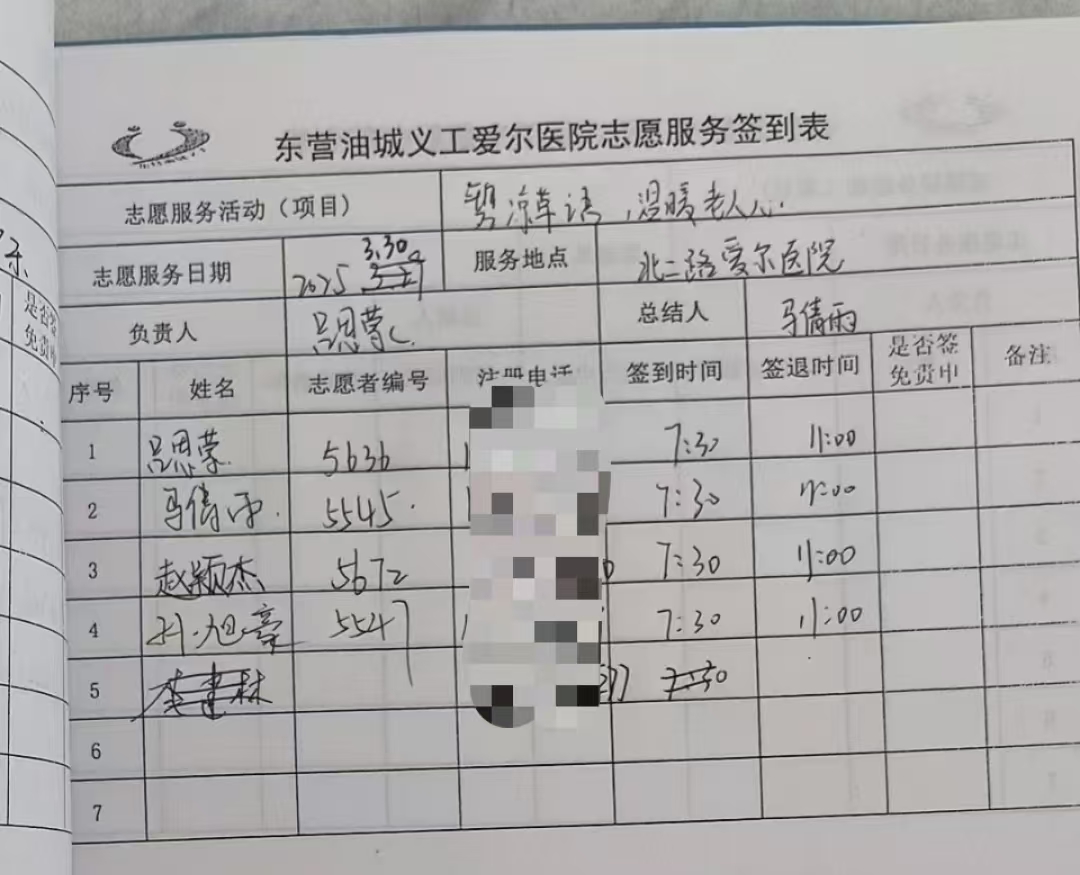 东营油城义工爱尔医院志愿服务签到表
志愿服务活动（项目） 温暖老人心.
志愿服务日期 2025 3.30 服务地点 北二路爱尔医院
负责人 吕思蒙 总结人 马倩雨
序号 姓名 志愿者编号 注册电话 签到时间 签退时间 是否签免费中 备注
1 吕思蒙 5636 7:30 11:00
2 马倩雨 5545 7:30 11:00
3 赵颖杰 5672 7:30 11:00
4 旭豪 5547 7:30 11:00
5 李建林 7:30
6
7